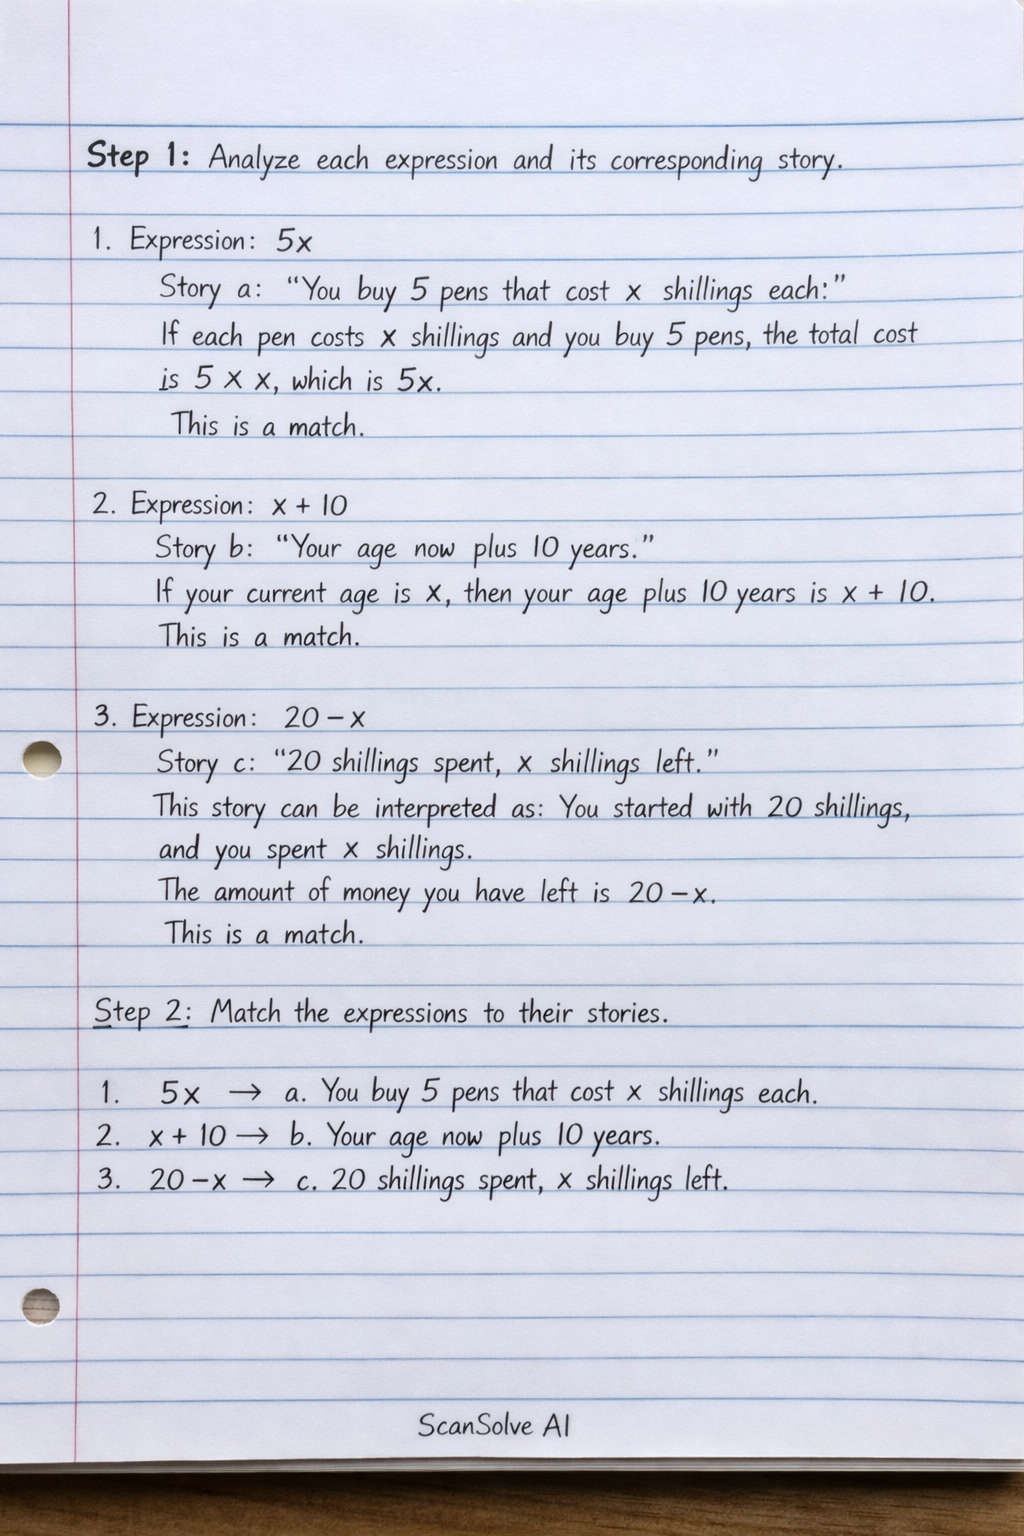 Step 1: Analyze each expression and its corresponding story.
1. Expression: 5x
Story a: “You buy 5 pens that cost x shillings each:”
If each pen costs x shillings and you buy 5 pens, the total cost
is 5 × x, which is 5x.
This is a match.
2. Expression: x + 10
Story b: “Your age now plus 10 years.”
If your current age is x, then your age plus 10 years is x + 10.
This is a match.
3. Expression: 20 – x
Story c: “20 shillings spent, x shillings left.”
This story can be interpreted as: You started with 20 shillings,
and you spent x shillings.
The amount of money you have left is 20 – x.
This is a match.
Step 2: Match the expressions to their stories.
1. 5x → a. You buy 5 pens that cost x shillings each.
2. x + 10 → b. Your age now plus 10 years.
3. 20 – x → c. 20 shillings spent, x shillings left.
ScanSolve AI